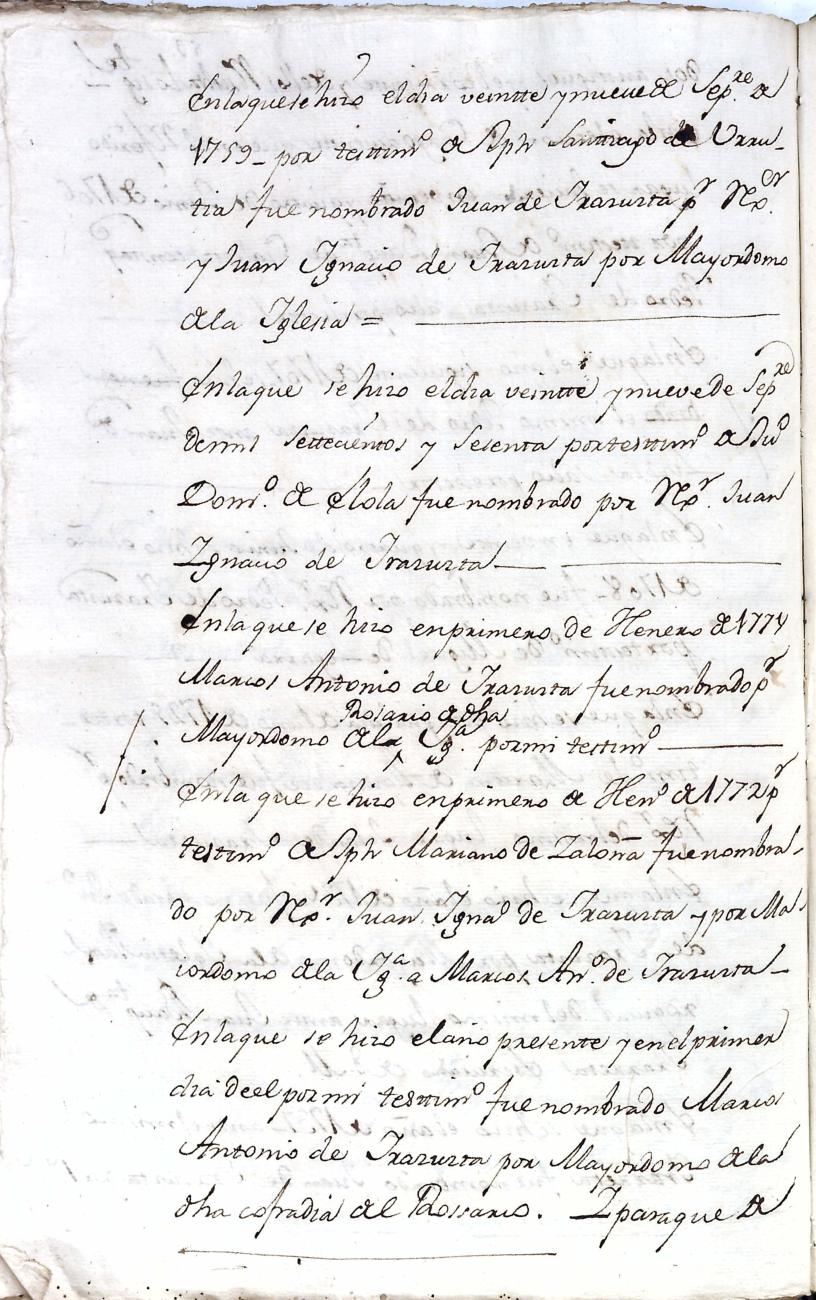 En la que se hizo el dia veintte y nueve de Sep.re de
1759_ por testtim.o de Jph Santtiago de Urru-
tia fue nombrado Juan de Irazusta p.r R.or
y Juan Ignacio de Irazusta por Mayordomo
de la Iglesia =
En la que se hizo el dia veintte y nueve de Sep.re
de mil settecientos y sesenta por testtim.o de
Dom.o de Elola fue nombrado por R.or Juan
Ignacio de Irazusta
En la que se hizo en primero de Henero de 1771
Marcos Antonio de Irazusta fue nombrado p.r
Rosario de dha
Mayordomo de la Ig.a por mi testtim.o
En la que se hizo en primero de Hen.o de 1772 p.r
testtim.o de Jph Mariano de Zaloña fue nombra-
do por R.or Juan Igna.o de Irazusta y por Ma-
iordomo de la Ig.a a Marcos An.o de Irazusta_
En la que se hizo el año presente y en el primer
dia de el por mi testtim.o fue nombrado Marcos
Antonio de Irazusta por Mayordomo de la
dha cofradia del Rossario. I para que de